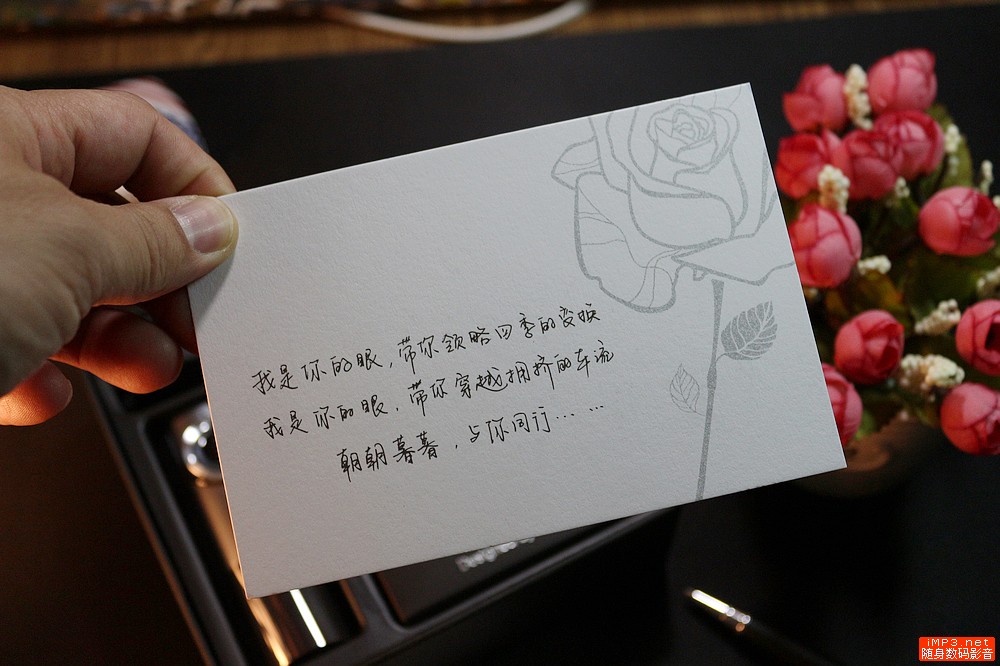 我是你的眼，带你领略四季的变换
我是你的眼，带你穿越拥挤的车流
朝朝暮暮，与你同行……
Designed by
iMP3.net
随身数码影音